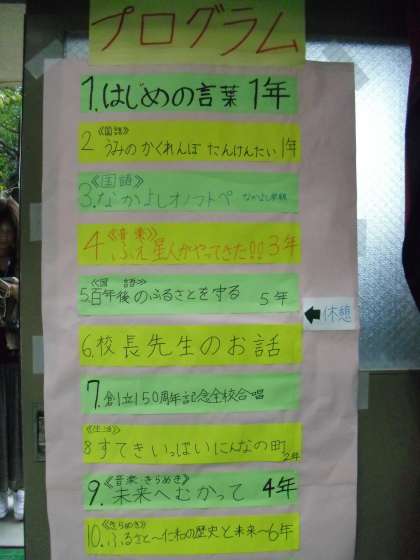 プログラム
1.はじめの言葉 1年
2《国語》うみのかくれんぼ たんけんたい 1年
《国語》
3.なかよしオノマトペ なかよし学級
《音楽》
4.ふえ星人がやってきた!! 3年
《国語》
5.百年後のふるさとを守る 5年
←休憩
6.校長先生のお話
7.創立150周年記念全校合唱
《生活》
8すてきいっぱいにんなの町 2年
《音楽・きらめき》
9.未来へむかって 4年
《きらめき》
10.ふるさと〜仁和の歴史と未来〜6年